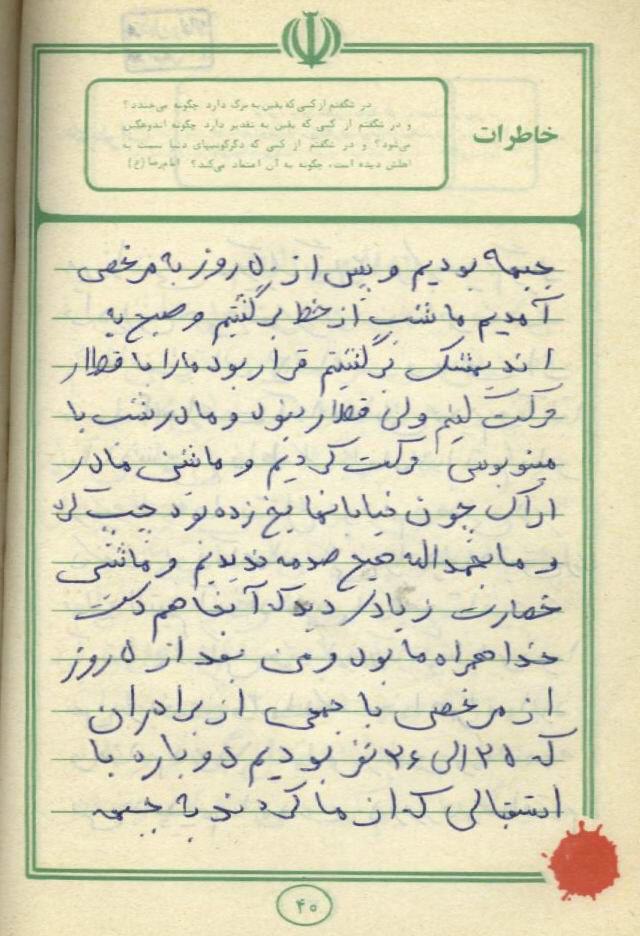 در شگفتم از کسی که یقین به مرگ دارد چگونه می‌خندد؟
و در شگفتم از کسی که یقین به تقدیر دارد چگونه اندوهگین
می‌شود؟ و در شگفتم از کسی که دگرگونیهای دنیا نسبت به
اهلش دیده است، چگونه به آن اعتماد می‌کند؟ امام رضا (ع)
خاطرات
جبهه بودیم و پس از ۵۰ روز به مرخصی
آمدیم ما شب از خط برگشتیم و صبح به
اندیمشک برگشتیم قرار بود ما را با قطار
حرکت کنیم ولی قطار نبود و ما در شب با
مینوبوس حرکت کردیم و ماشین ما در
اراک چون خیابانها یخ زده بود چپ کرد
و ما بحمدالله هیچ صدمه ندیدیم و ماشین
خصارت زیادی دید که آنجا هم دست
خدا همراه ما بود و من بعد از ۵ روز
از مرخصی با جمعی از برادران
که ۳۵ الی ۳۶ نفر بودیم دوباره با
استقبالی که از ما کردند به جبهه
۴۰